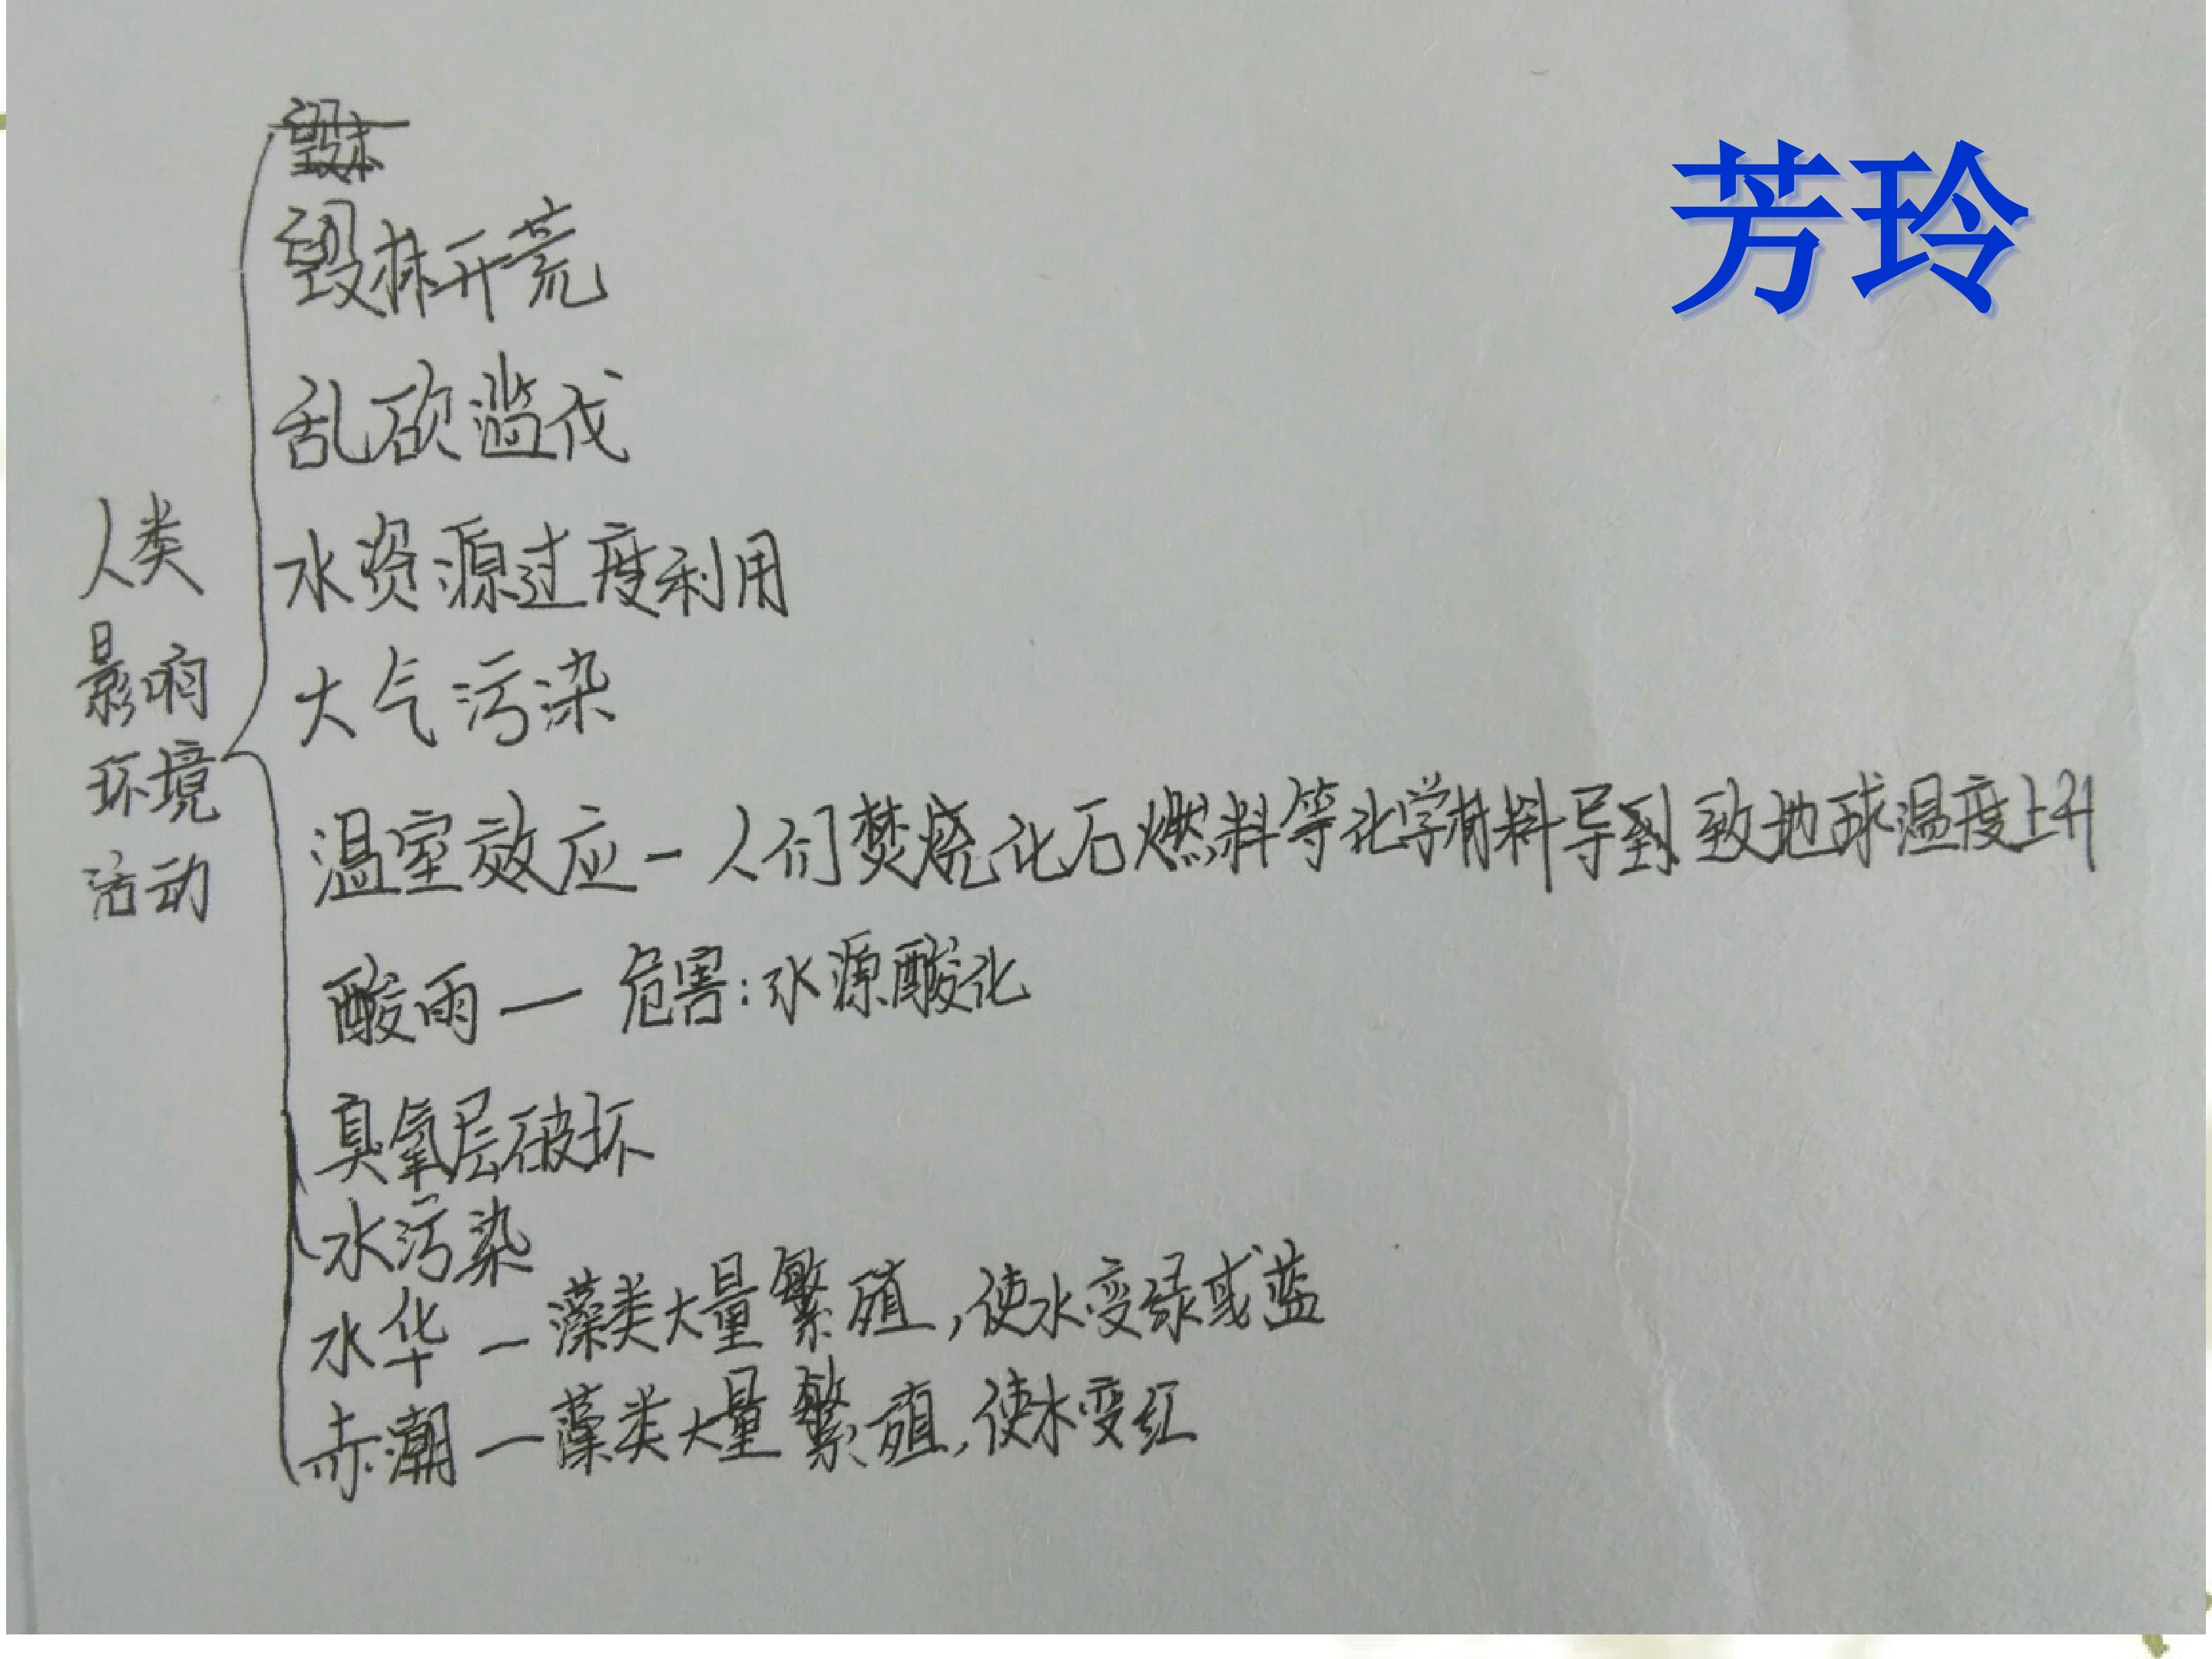 芳玲
毁林开荒
乱砍滥伐
水资源过度利用
大气污染
人类
影响
环境
活动
温室效应-人们焚烧化石燃料等化学材料导到致地球温度上升
酸雨—危害:水源酸化
臭氧层破坏
水污染
水华-藻类大量繁殖,使水变绿或蓝
赤潮-藻类大量繁殖,使水变红